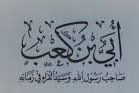 أبي بن كعب
صاحب رسول الله وسيد القراء في زمانه